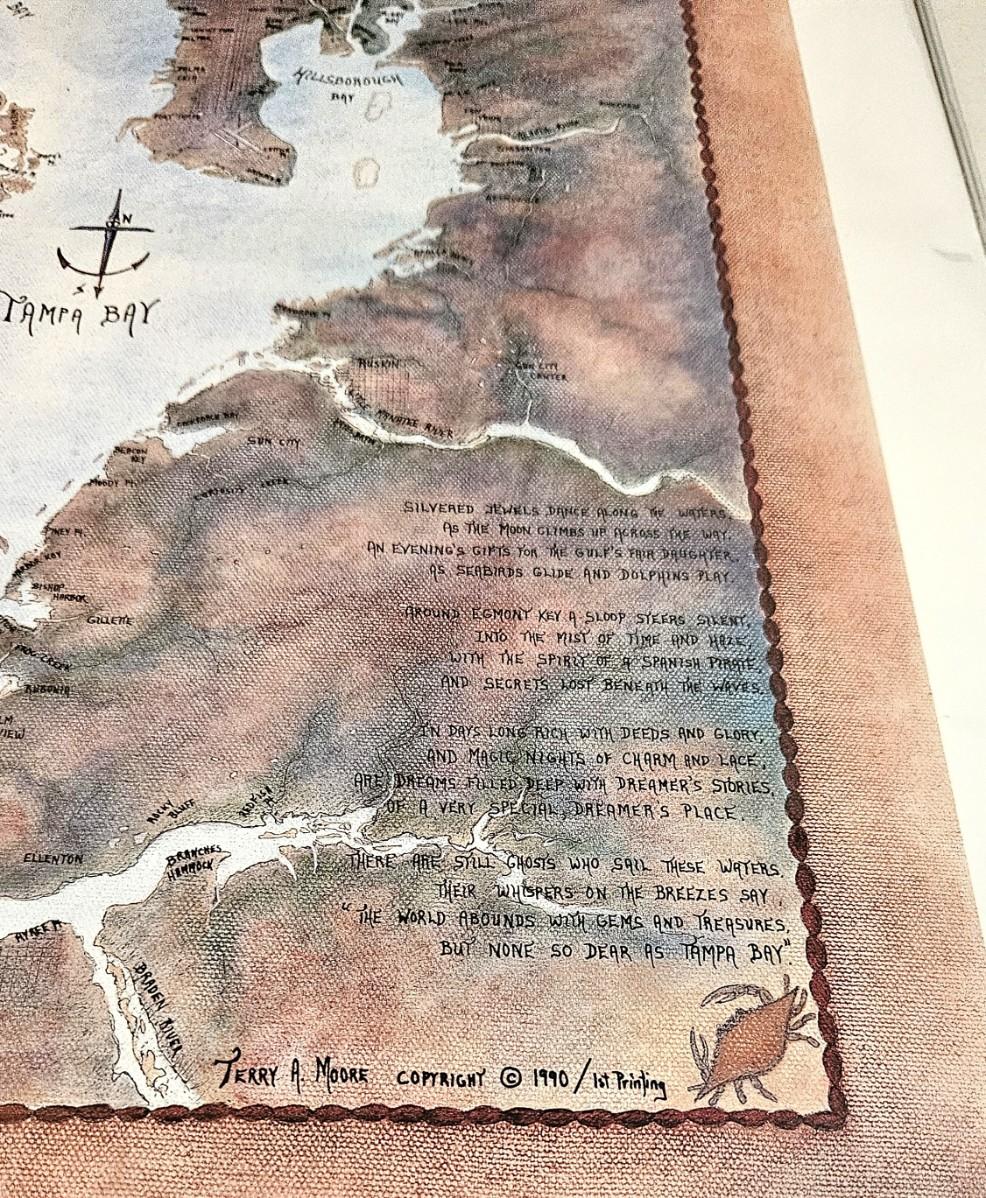 HILLSBOROUGH
BAY
N
S
TAMPA BAY
RUSKIN
SUN CITY
CENTER
LITTLE MANATEE RIVER
COCKROACH BAY
SUN CITY
BEACON
KEY
MOODY PT.
CURIOSITY CREEK
PINEY PT.
BISHOP
HARBOR
GILLETTE
FROG CREEK
RUBONIA
VIEW
SILVERED JEWELS DANCE ALONG THE WATERS,
AS THE MOON CLIMBS UP ACROSS THE WAY.
AN EVENING'S GIFTS FOR THE GULF'S FAIR DAUGHTER,
AS SEABIRDS GLIDE AND DOLPHINS PLAY
AROUND EGMONT KEY A SLOOP STEERS SILENT,
INTO THE MIST OF TIME AND HAZE
WITH THE SPIRIT OF A SPANISH PIRATE
AND SECRETS LOST BENEATH THE WAVES.
IN DAYS LONG RICH WITH DEEDS AND GLORY,
AND MAGIC NIGHTS OF CHARM AND LACE,
ARE DREAMS FILLED DEEP WITH DREAMER'S STORIES,
OF A VERY SPECIAL, DREAMER'S PLACE.
ROCKY
BLUFF
ELLENTON
BRANCHES
HAMMOCK
THERE ARE STILL GHOSTS WHO SAIL THESE WATERS
THEIR WHISPERS ON THE BREEZES SAY,
"THE WORLD ABOUNDS WITH GEMS AND TREASURES,
BUT NONE SO DEAR AS TAMPA BAY".
BRADEN RIVER
TERRY A. MOORE COPYRIGHT © 1990/1st Printing